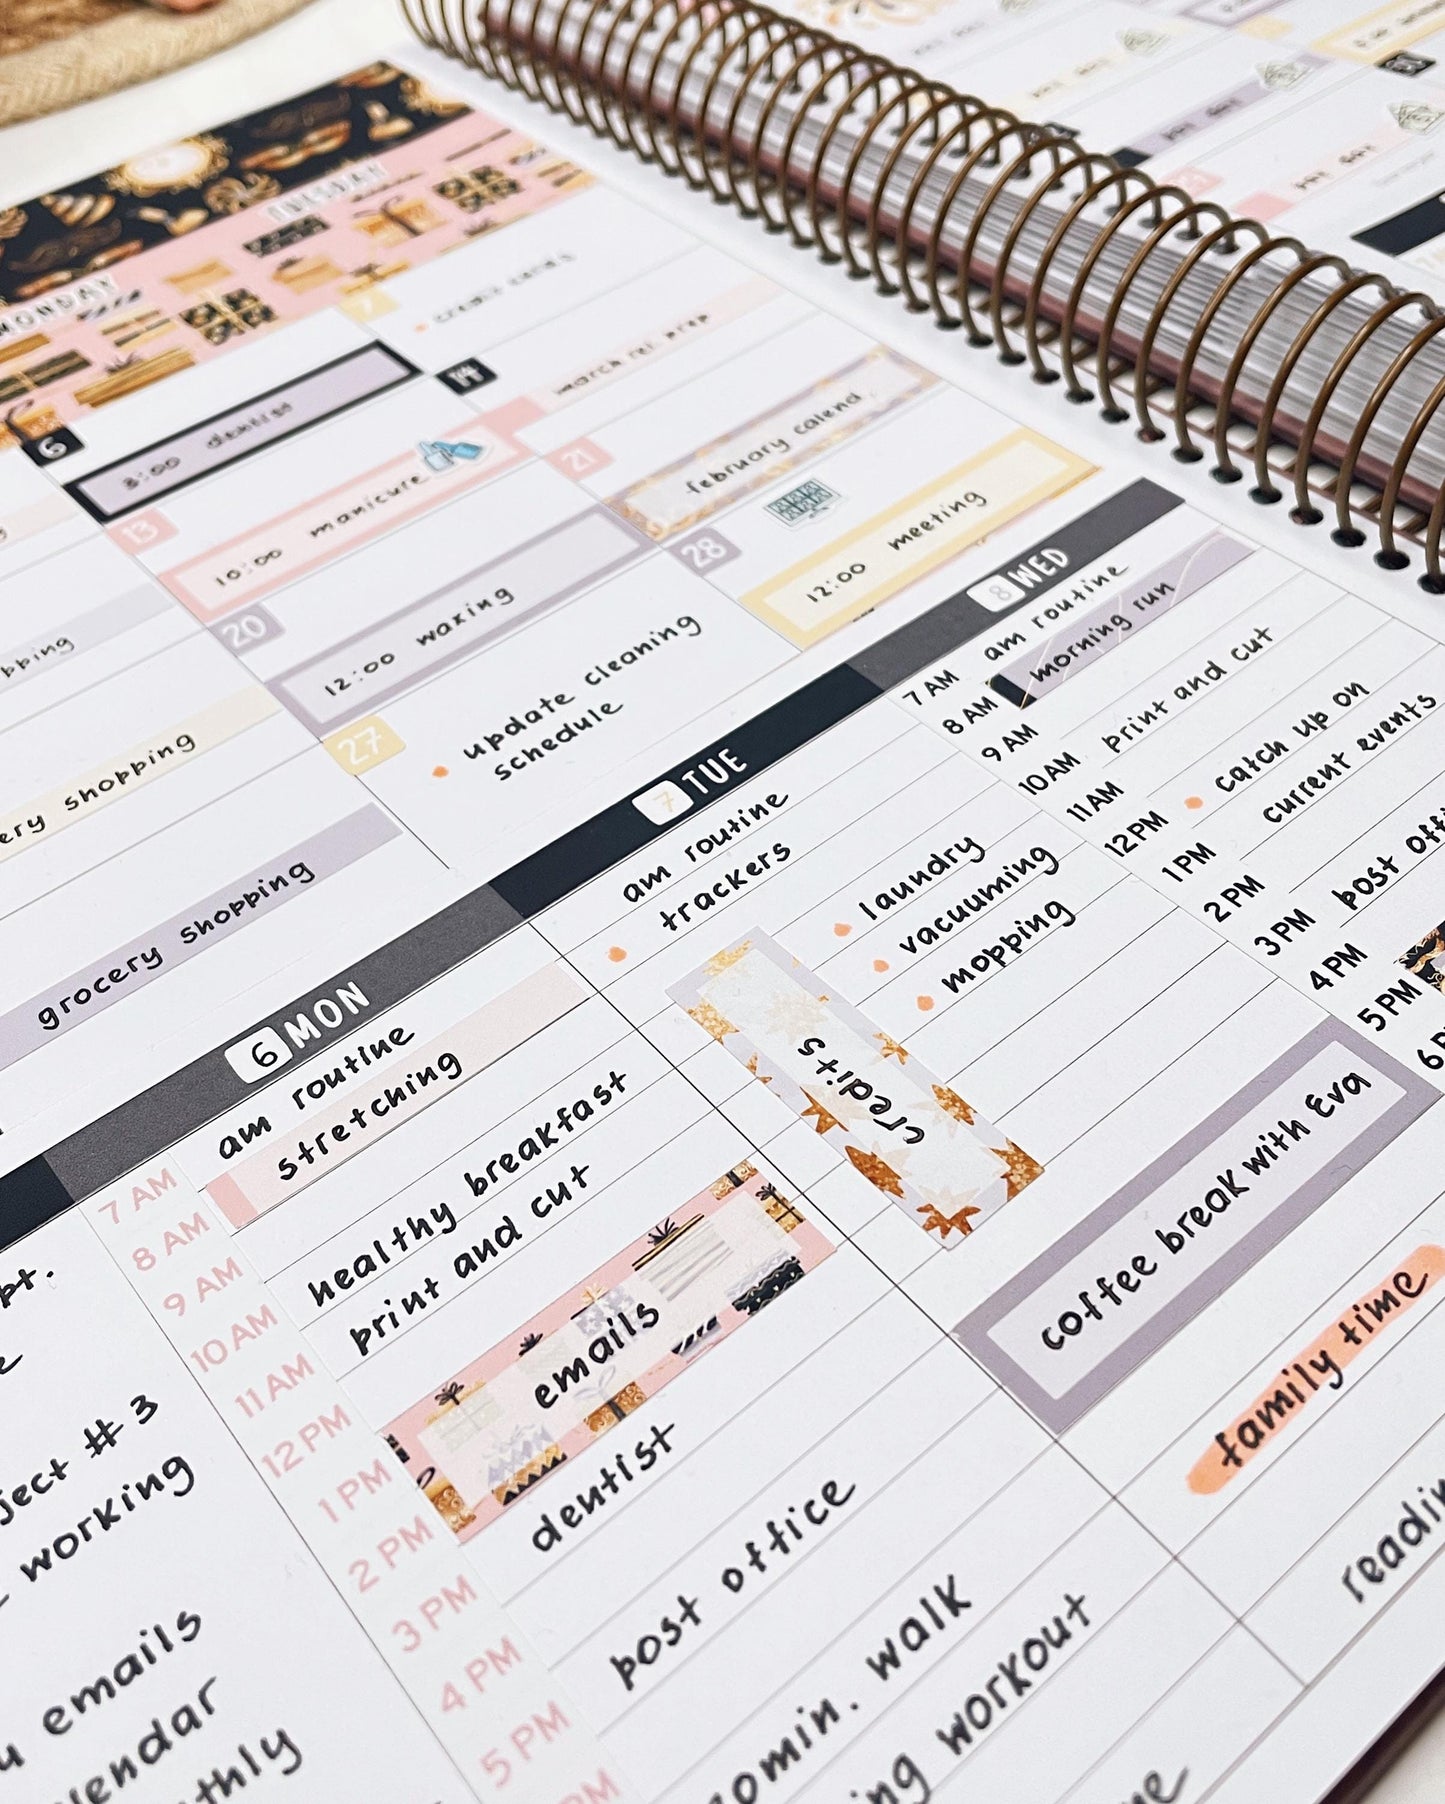 MONDAY
TUESDAY
6
8:00 dentist
13
10:00 manicure
20
12:00 waxing
27
update cleaning
schedule
7
credit cards
14
21
february calend
28
12:00 meeting
shopping
grocery shopping
6 MON
am routine
stretching
healthy breakfast
print and cut
emails
dentist
post office
walk
workout
7 AM
8 AM
9 AM
10 AM
11 AM
12 PM
1 PM
2 PM
3 PM
4 PM
5 PM
PM
7 TUE
am routine
trackers
laundry
vacuuming
mopping
credits
coffee break with Eva
family time
8 WED
am routine
morning run
print and cut
catch up on
current events
post
7 AM
8 AM
9 AM
10 AM
11 AM
12 PM
1 PM
2 PM
3 PM
4 PM
5 PM
6
# 3
working
emails